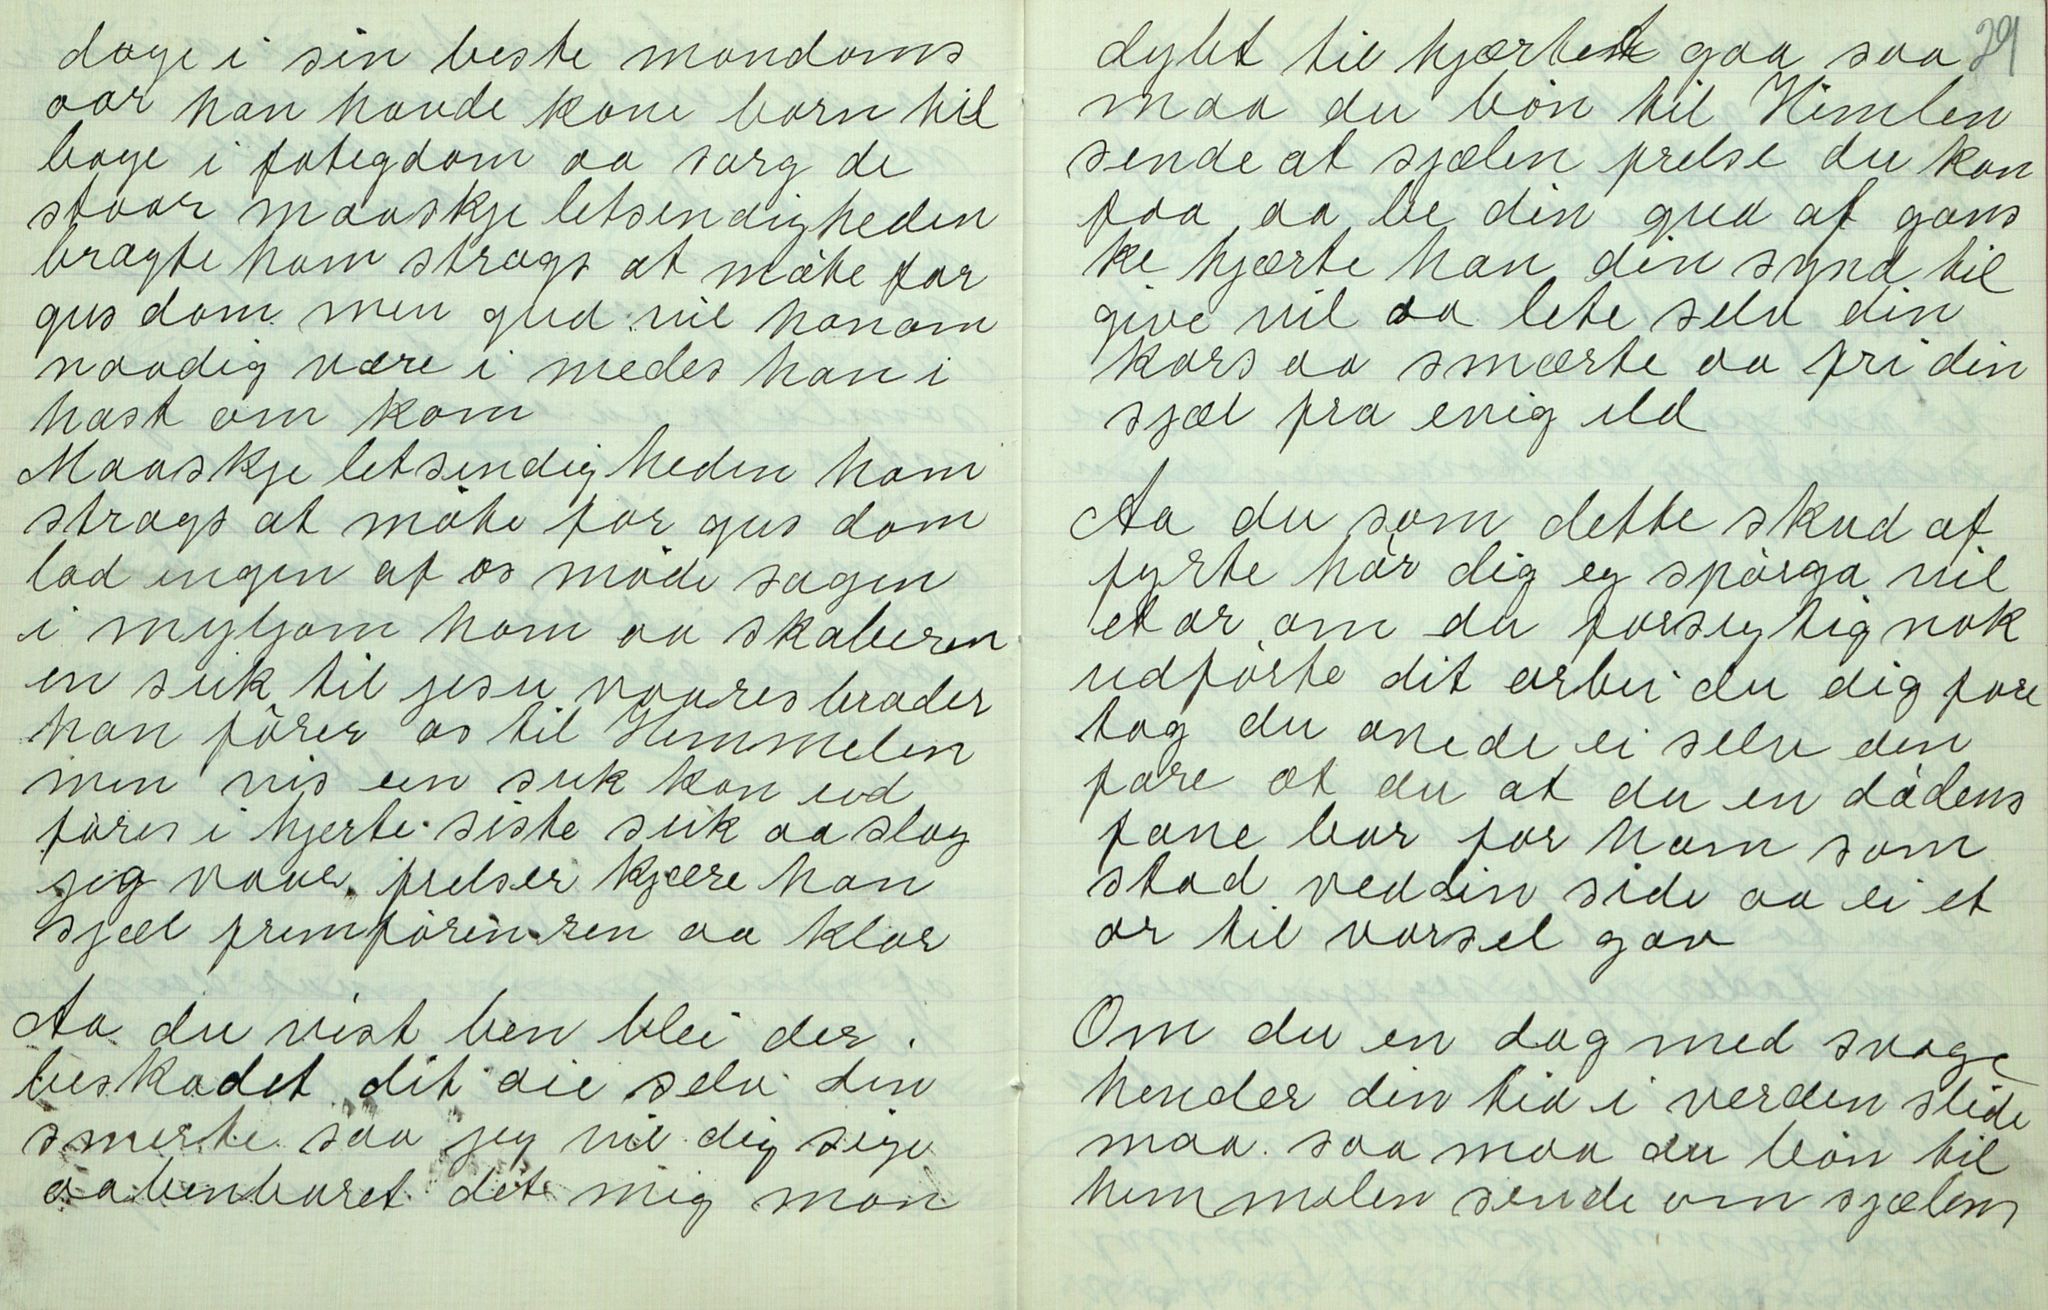 dage i sin beste mandoms
aar han havde kone barn til
bage i fatigdom aa sarg de
staar maaskje letsendigheden
bragte ham strags at møte for
gus dom men gud vil hanom
naadig være i medes han i
hast om kom
Maaskje letsendigheden ham
strags at møte for gus dom
lad ingen af os møde sagen
i myljom ham aa skaberen
en suk til jesu vaares broder
han fører os til Himmelen
men vis een suk kan ud
føres i hjerte siste suk aa slag
jeg vaar frelser kjære han
sjæl fremføren ren aa klar
Aa du vist ben blei der
beskadet dit øie selv den
smerte saa jeg vil dig sige
aabenbaret det mig mon
29
dybt til hjærtet gaa saa
maa du bøn til Himlen
sende at sjælen frelse du kan
faa aa be din gud af gans
ke hjærte han din synd til
give vil aa lete selv din
kors aa smærte aa fri din
sjæl fra evig ild
Aa du som dette skud af
fyrte hør dig eg spørga vil
et or om du forsigtig nok
udførte dit arbei du dig fore
tog du anede ei selv den
fare at du at du en dødens
fane bar for ham som
stod ved din side aa ei et
or til varsel gav
Om du en dag med svage
hender din tid i verden slide
maa saa maa du bøn til
himmalen sende om sjælen